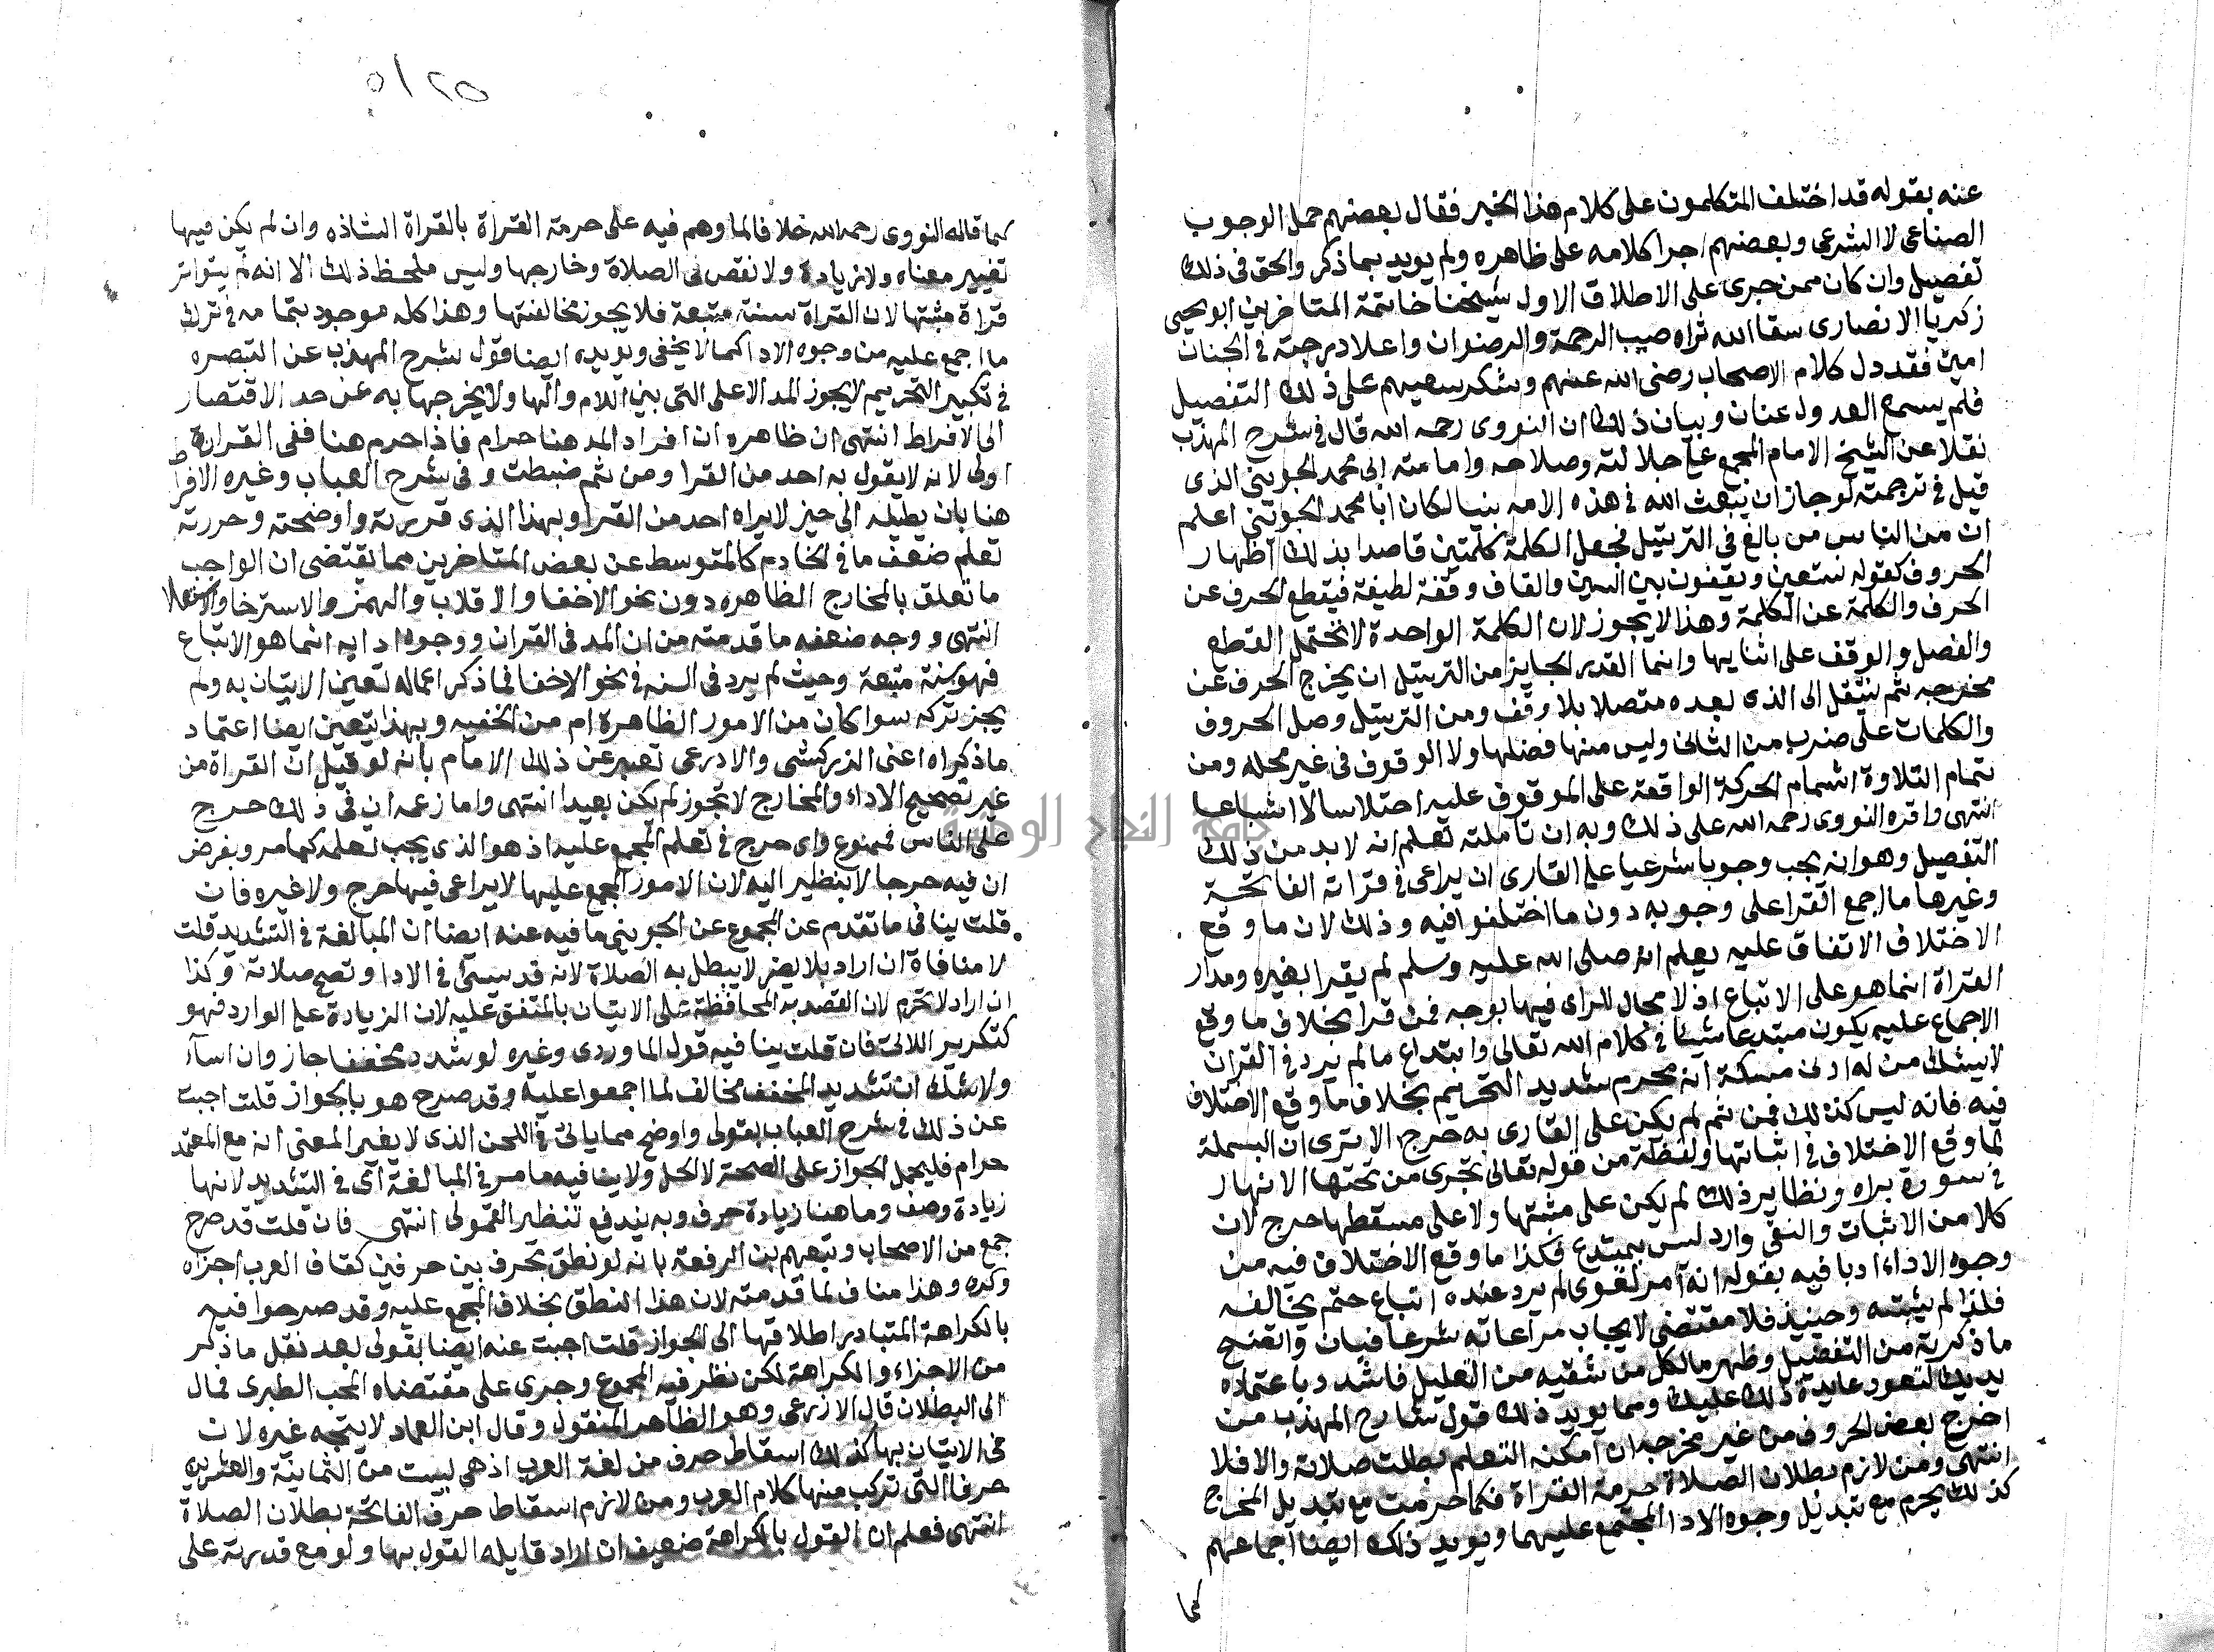 عنه بقوله قد اختلف المتكلمون على كلام هذا الخبر فقال بعضهم حمل الوجوب
الصناعى لا الشرعى وبعضهم اجرا كلامه على ظاهره ولم يويد بما ذكر والحق فى ذلك
تفصيل وان كان ممن جرى على الاطلاق الاول شيخنا خاتمة المتاخرين ابو يحيى
زكريا الانصارى سقا الله ثراه صيب الرحمة والرضوان واعلا درجته فى الجنان
امين فقد دل كلام الاصحاب رضى الله عنهم وشكر سعيهم على ذلك التفصيل
فلم يسمع العدول عنان وبيان ذلك ان النووى رحمه الله قال فى شرح المهذب
نقلا عن الشيخ الامام المجمع على جلالته وصلاحه وامامته ابى محمد الجوينى الذى
قيل فى ترجمته لو جاز ان يبعث الله فى هذه الامه نبيا لكان ابا محمد الجوينى اعلم
ان من الناس من بالغ فى الترتيل فجعل الكلمة كلمتين قاصدا بذلك اظهار
الحروف كقوله نستعين ويقفون بين السين والقاف وقفة لطيفة فيقطع الحرف عن
الحرف والكلمة عن الكلمة وهذا لا يجوز لان الكلمة الواحدة لا تحتمل القطع
والفصل والوقف على اثنايها وانما القدر الجايز من الترتيل ان يخرج الحرف عن
مخرجه ثم ينتقل الى الذى بعده متصلا بلا وقف ومن الترتيل وصل الحروف
والكلمات على ضرب من التانى وليس منها فصلها ولا الوقوف فى غير محله ومن
تمام التلاوة اشمام الحركة الواقعة على الموقوف عليه اختلاسا لا اشباعا
انتهى واقره النووى رحمه الله على ذلك وبه ان تاملته تعلم انه لا بد من ذلك
التفصيل وهو انه يجب وجوبا شرعيا على القارى ان يراعى فى قراته الفاتحة
وغيرها ما اجمع القرا على وجوبه دون ما اختلفوا فيه وذلك لان ما وقع
الاختلاف الاتفاق عليه يعلم انه صلى الله عليه وسلم لم يقرا بغيره ومدار
القراة انما هو على الاتباع اذ لا مجال للراى فيها بوجه فمن قرا بخلاف ما وقع
الاجماع عليه يكون مبتدعا شيئا فى كلام الله تعالى وابتداع ما لم يرد فى القران
لا يشك من له ادنى مسكة انه محرم شديد التحريم بخلاف ما وقع الاختلاف
فيه فانه ليس كذلك فمن ثم لم يكن على القارى به حرج الا ترى ان البسملة
لما وقع الاختلاف فى اثباتها ولفظة من قوله تعالى تجرى من تحتها الانهار
فى سورة براه ونظاير ذلك لم يكن على مثبتها ولا على مسقطها حرج لان
كلا من الاثبات والنفى وارد ليس بمبتدع فكذا ما وقع الاختلاف فيه من
وجوه الاداء ادبا فيه بقوله انه امر لغوى لم يرد عنده اتباع حتم يخالفه
فلذا لم يثبته وحينيذ فلا مقتضى لايجاب مراعاته شرعا فبان واتضح
ما ذكرته من التفصيل وظهر ما لكل من شقيه من التعليل فاشدد باعتماده
يديك لتعود عايدة ذلك عليك ومما يويد ذلك قول شارح المهذب من
اخرج بعض الحروف من غير مخرجه ان امكنه التعلم بطلت صلاته والا فلا
انتهى ومن لازم بطلان الصلاة حرمة القراة فكما حرمت مع تبديل المخرج
كذلك يحرم مع تبديل وجوه الادا المجتمع عليهما ويويد ذلك ايضا اجماعهم
كما
٥١٢٥
كما قاله النووى رحمه الله خلافا لما وهم فيه على حرمة القراة بالقراة الشاذه وان لم يكن فيها
تغيير معناه ولا زيادة ولا نقص فى الصلاة وخارجها وليس ملحظ ذلك الا انه لم يتواتر
قراة مثتها لان القراة سنة متبعة فلا يجوز مخالفتها وهذا كله موجود بتمامه فى ترك
ما اجمع عليه من وجوه الادا كما لا يخفى ويويده ايضا قول شرح المهذب عن التبصره
فى تكبير التحريم لا يجوز المد الا على التى بين اللام والها ولا يخرجها به عن حد الاقتصار
الى الافراط انتهى ان ظاهره ان افراد المد هنا حرام فاذا حرم هنا ففى القراة
اولى لانه لا يقول به احد من القرا ومن ثم ضبطت وفى شرح العباب وغيره الافراط
هنا بان يطيله الى حيز لا يراه احد من القرا وبهذا الذى قررته واوضحته وحررته
تعلم ضعف ما فى الخادم كالمتوسط عن بعض المتاخرين مما يقتضى ان الواجب
ما تعلق بالمخارج الظاهره دون نحو الاخفا والاقلاب والهمز والاسترخا والاستعلا
انتهى ووجه ضعفه ما قدمته من ان المد فى القران ووجوه ادايه انما هو الاتباع
فهو سنة متبعة وحيث لم يرد فى السنه فى نحو الاخفا فى ما ذكر اعماله تعين الاتيان به ولم
يجز تركه سوا كان من الامور الظاهرة ام من الخفيه وبهذا يتعين ايضا اعتماد
ما ذكراه اعنى الزركشى والاذرعى تعبير عن ذلك الامام بانه لو قيل ان القراة من
غير تصحيح الاداء والمخارج لا تجوز لم يكن بعيدا انتهى واما زعمه ان فى ذلك حرج
على الناس فممنوع واى حرج فى تعلم المجمع عليه اذ هو الذى يجب تعلمه كما مر وبفرض
ان فيه حرجا لا ينظير اليه لان الامور المجمع عليها لا يراعى فيها حرج ولا غيره فان
قلت ينافى ما تقدم عن المجموع عن الجوينى ما فيه عنه ايضا ان المبالغة فى التشديد قلت
لا منافاة ان اراد بلا يضر لا يبطل به الصلاة لانه قد يسئ فى الادا وتصح صلاته وكذا
ان اراد لا تحرم لان القصد به المحافظة على الاتيان بالمتفق عليه لان الزيادة على الوارد فهو
كتكرير اللاتى فان قلت ينافيه قول الماوردى وغيره لو شدد مخففا جاز وان اسآء
ولا شك ان تشديد المخفف مخالف لما اجمعوا عليه وقد صرح هو بالجواز قلت اجبت
عن ذلك فى شرح العباب بقولى واوضح مما ياتى فى اللحن الذى لا يغير المعنى انه مع المعتمد
حرام فليحمل الجواز على الصحة لا الحل ولا ينافيه ما مر فى المبالغة اى فى التشديد لانها
زيادة وصف وما هنا زيادة حرف وبه يندفع تنظير القمولى انتهى فان قلت قد صرح
جمع من الاصحاب وتبعهم بن الرفعة بانه لو نطق بحرف بين حرفين كقاف العرب اجزاه
وكره وهذا مناف لما قدمته لان هذا النطق بخلاف المجمع عليه وقد صرحوا فيه
بالكراهة المتبادر اطلاقها الى الجواز قلت اجبت عنه ايضا بقولى بعد نقل ما ذكر
من الاجزاء والكراهة لكن نظر فيه المجموع وجرى على مقتضاه المحب الطبرى فمال
الى البطلان قال الاذرعى وهو الظاهر المنقول وقال ابن العماد لا يتجه غيره لان
فى الاتيان بها كذلك اسقاط حرف من لغة العرب اذ هى ليست من الثمانية والعشرين
حرفا التى تركب منها كلام العرب ومن لازم اسقاط حرف الفاتحة بطلان الصلاة
انتهى فعلم ان القول بالكراهة ضعيف ان اراد قايله القول بها ولو مع قدرته على
جامعة النجاح الوطنية